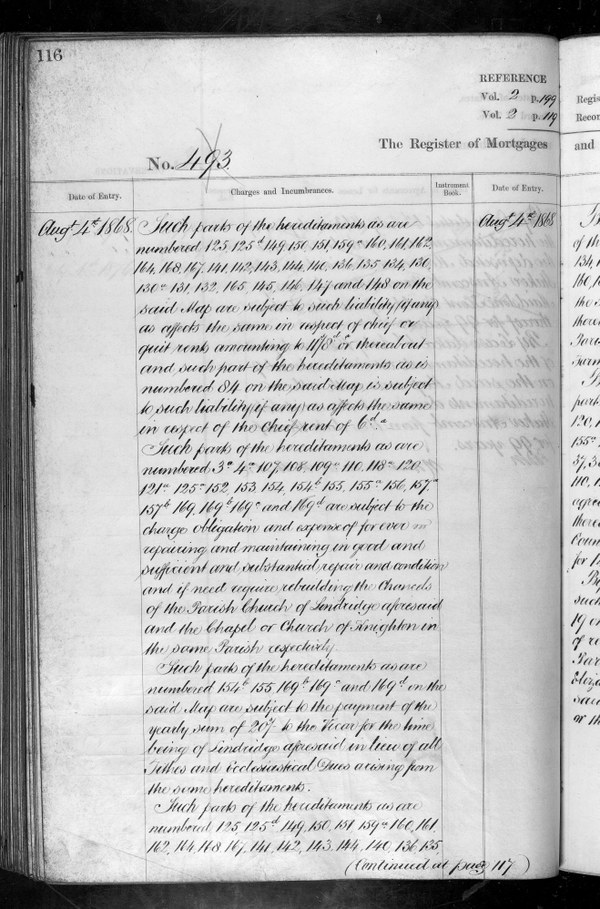 116
REFERENCE
Vol. 2 p. 199
Vol. 2 p. 119
The Register of Mortgages
No. 493
Date of Entry.
Charges and Incumbrances.
Instrument Book.
Date of Entry.
Augt 4th 1868
Such parts of the hereditaments as are
numbered 125, 125d 149, 150, 151, 159a 160, 161, 162,
164, 168, 167, 141, 142, 143, 144, 140, 136, 135, 134, 130,
130a 131, 132, 165, 145, 146, 147 and 148 on the
said Map are subject to such liability (if any)
as affects the same in respect of chief or
quit rents amounting to or thereabout
and such part of the hereditaments as is
numbered 84 on the said Map is subject
to such liability (if any) as affects the same
in respect of the Chief rent of 6d.
Such parts of the hereditaments as are
numbered 3a 4a 107, 108, 109a 110, 118a 120,
121a 125a 152, 153, 154, 154b 155, 155a 156, 157a
157b 169, 169b 169c and 169d are subject to the
charge obligation and expense of for ever
repairing and maintaining in good and
sufficient and substantial repair and condition
and if need require rebuilding the Chancels
of the Parish Church of Lindridge aforesaid
and the Chapel or Church of Knighton in
the same Parish respectively.
Such parts of the hereditaments as are
numbered 154b 155, 169b 169c and 169d on the
said Map are subject to the payment of the
yearly sum of 20/- to the Vicar for the time
being of Lindridge aforesaid in lieu of all
Tithes and Ecclesiastical Dues arising from
the same hereditaments.
Such parts of the hereditaments as are
numbered 125, 125d 149, 150, 151, 159a 160, 161,
162, 164, 168, 167, 141, 142, 143, 144, 140, 136, 135
(Continued at page 117)
Augt 4th 1868
Regis
Recor
and